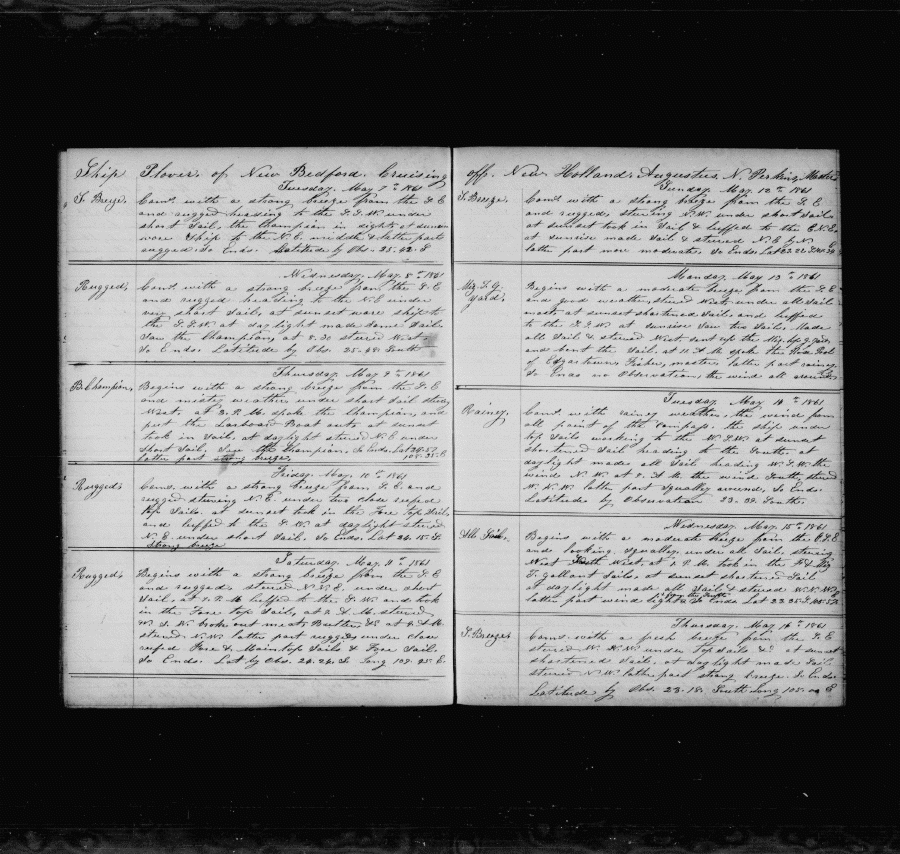 Ship Plover of New Bedford. Cruising
Tuesday, May 7th 1861
S. Breeze. Coms. with a strong breeze from the S. E
and rugged heading to the S. S. W. under
short Sail, the Champion in sight, at sunset
wore Ship to the N. E. middle & latter parts
rugged. So Ends. Latitude by Obs. 25.48. S
Wednesday, May 8th 1861
Rugged. Coms. with a strong breeze from the S. E
and rugged heading to the N. E under
short Sail, at sunset wore ship to
the S. S. W. at daylight made some Sail.
Saw the Champion, at 8.30 steered West.
So Ends. Latitude by Obs. 25.48. South
Thursday, May 9th 1861
B. Champion, Begins with a strong breeze from the S. E
and misty weather under short Sail steering
West. at 3. P. M. spoke the Champion, and
put the Larboard Boat out, at sunset
took in Sail. at daylight steered N. E. under
short Sail, Saw the Champion. So Ends. Lat
latter part strong breeze,
Friday, May, 10th 1861
Rugged Coms. with a strong breeze from S. E. and
rugged steering N. E. under two close reefed
top Sails. at sunset took in the Fore top Sail,
and luffed to the S. W. at daylight steered
N. E. under short Sail. So Ends. Lat 24. 15. S.
Strong breeze
Saturday, May, 11th 1861
Rugged, Begins with a strong breeze from the S. E
and rugged. steered N. N. E. under short
Sail. at luffed to the S. W. and took
in the Fore top Sail, at 2. A. M. steered
W. S. W. broke out meat, Butter &c at A. M.
steered N. W. latter part rugged, under close
reefed Fore & Maintop Sails & Fore Sail.
So Ends. Lat by Obs. 24.24. S Long 109.25. E.
off. New Holland. Augustus. N. Perkins, Master
Sunday, May, 12th 1861
S. Breeze. Coms. with a strong breeze from the S. E
and rugged, steering N. W. under short Sail.
at sunset took in Sail & luffed to the E. N. E.
at sunrise made Sail & steered N. E. by N.
latter part more moderate, So Ends.
Monday, May 13th 1861
Miz. T. G. yard. Begins with a moderate breeze from the S. E
and good weather, steered West, under all Sail
at sunset shortened Sail, and luffed
to the S. S. W. at sunrise Saw two Sails. Made
all Sail & steered West sent up the Miz. top g. yard,
and bent the Sail. at 11. A. M. spoke the Pool
of Edgartown, Fisher, master, latter part rainy
So Ends no Observation, the wind all around
Tuesday, May 14th 1861
Rainey. Coms. with rainey weather, the wind from
all point of the Compass. the Ship under
top Sails working to the W. S. W. at sunset
shortened Sail heading to the South, at
daylight made all Sail heading W. S. W. the
wind N. W. at A. M. the wind South, steered
W. N. W. latter part Squally around, So Ends.
Latitude by Observation 23-09. South.
Wednesday, May, 15th 1861
All Sail. Begins with a moderate breeze from the E. S. E
and looking Squally. under all Sail steering
West South West. at P. M. took in the
T. gallant Sails. at sunset shortened Sail
at daylight made all Sail & steered W. N. W.
from the South
latter part wind light So Ends Lat
Thursday, May, 16th 1861
S. Breeze Coms. with a fresh breeze from the S. E
steered W. N. W. under Top Sails &c at sunset
shortened Sail. at daylight made Sail.
steered N. W. latter part strong breeze. So Ends
Latitude by Obs. 23-18. South Long 105. E